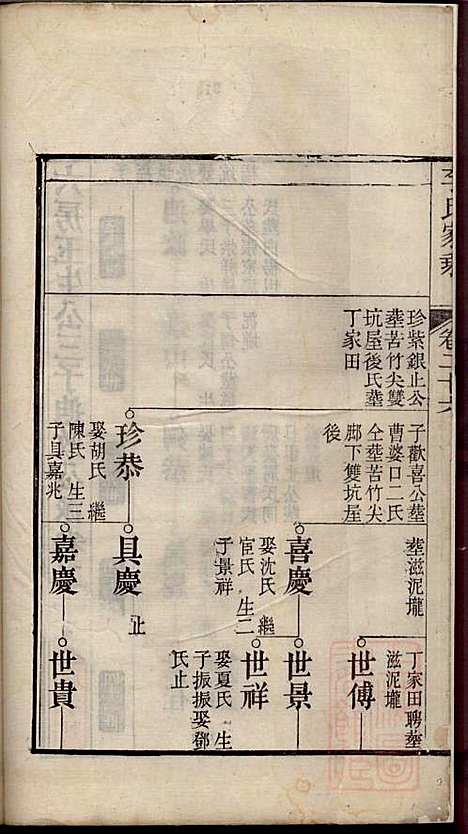 李氏家乘
卷二十六
珍紫銀止公
葬苦竹尖雙
坑屋後氏葬
丁家田
子歡喜公葬
曹婆口二氏
仝葬苦竹尖
脚下雙坑屋
後
葬滋泥壠
丁家田聘葬
滋泥壠
世傅
喜慶
娶沈氏 繼
宦氏 生二
子景祥
世景
世祥
娶夏氏 生
子振振娶鄧
氏止
珍恭
娶胡氏 繼
陳氏 生三
子具嘉兆
具慶
止
嘉慶
世貴